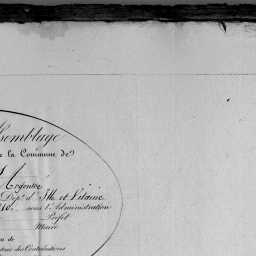 semblage
e la Commune de
Argentré
Dép.t d'Ille et Vilaine
sous l'Administration
Préfet
Maire
on de
des Contributions